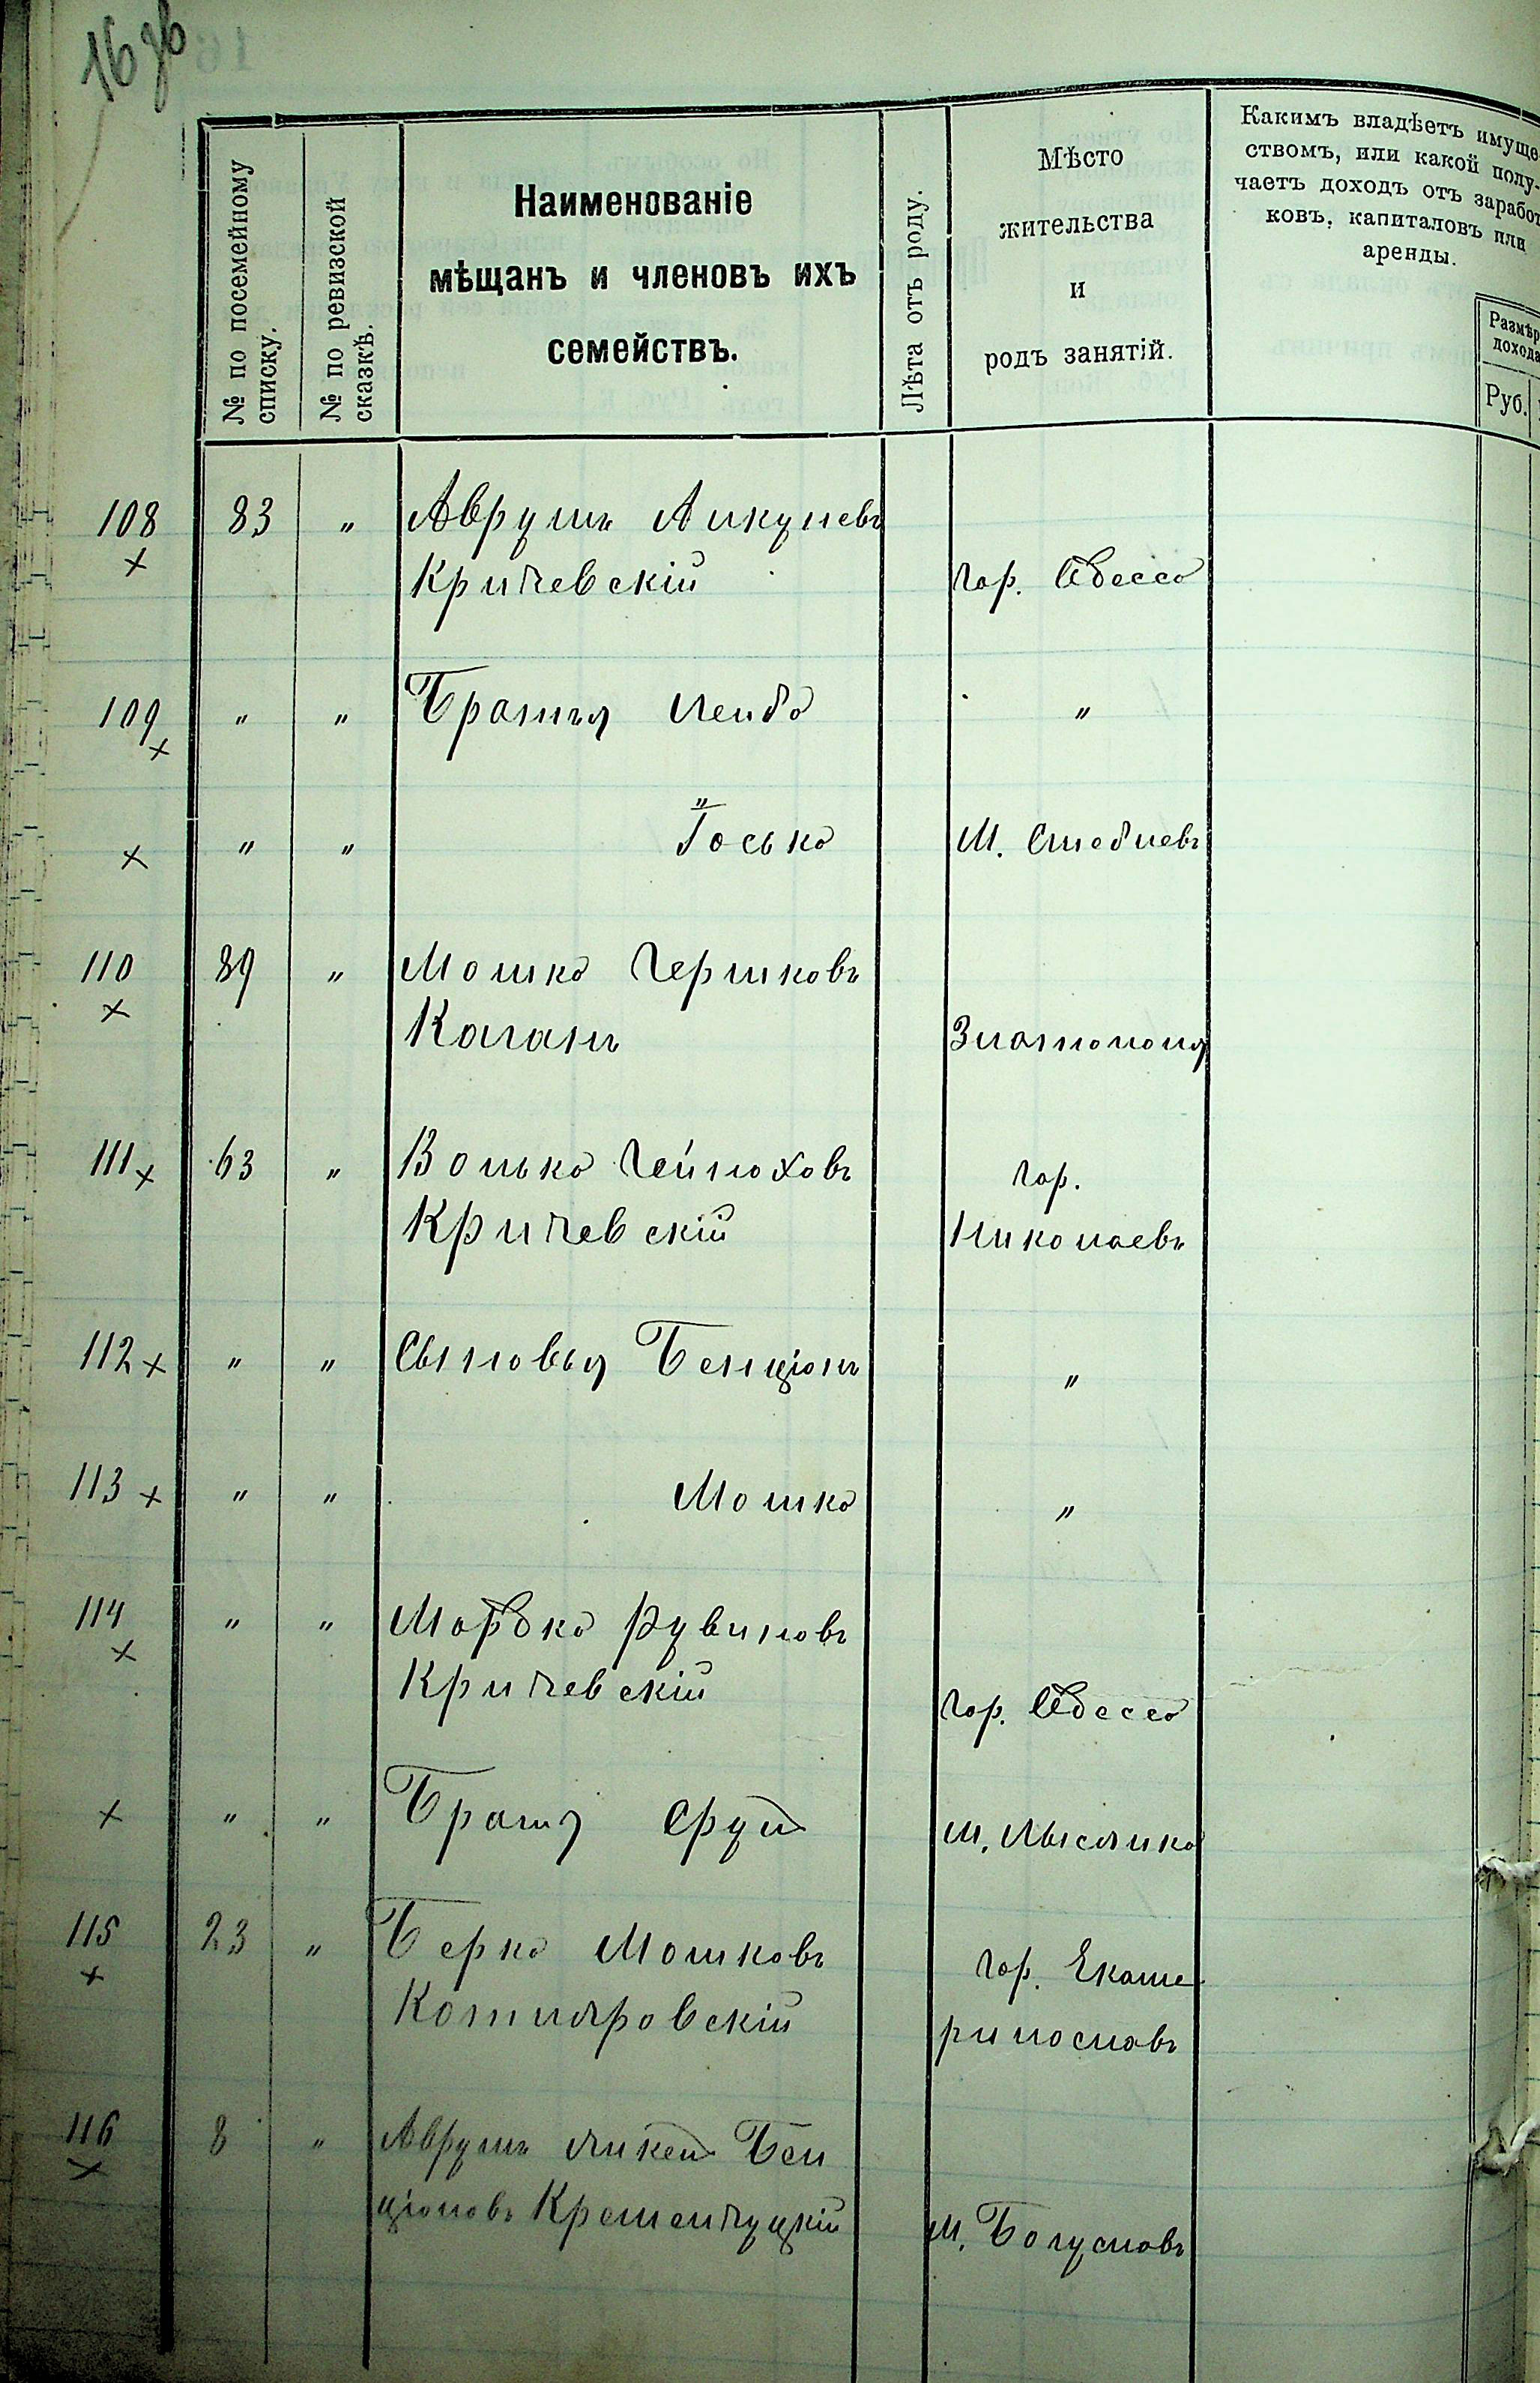 16 зв
№ по посемейному
списку.
№ по ревизской
сказкѣ.
Наименованіе
мѣщанъ и членовъ ихъ
семействъ.
Лѣта отъ роду.
Мѣсто
жительства
и
родъ занятій.
Какимъ владѣетъ имуще
ствомъ, или какой полу-
чаетъ доходъ отъ заработ
ковъ, капиталовъ или
аренды.
Размѣр
дохода
Руб.
108 83 " Аврумъ Анкулевъ
Кричевскій гор. Одесса
109 " " Братья Лейба "
"
" " Госька М. Стеблевъ
110 89 " Мошко Гершковъ
Каганъ Златополя
111 63 " Волько Гейноховъ гор.
Кричевскій Николаевъ
112 " " Сыновья Бенціонъ "
113 " " Мошко "
114 " " Мордко Рувиновъ
Кричевскій гор. Одесса
" " Братъ Сруй м. Лысянка
115 23 " Берко Мошковъ гор. Екате
Котляровскій ринославъ
116 8 " Аврумъ Бен
ціоновъ Кременчуцкій м. Богуславъ